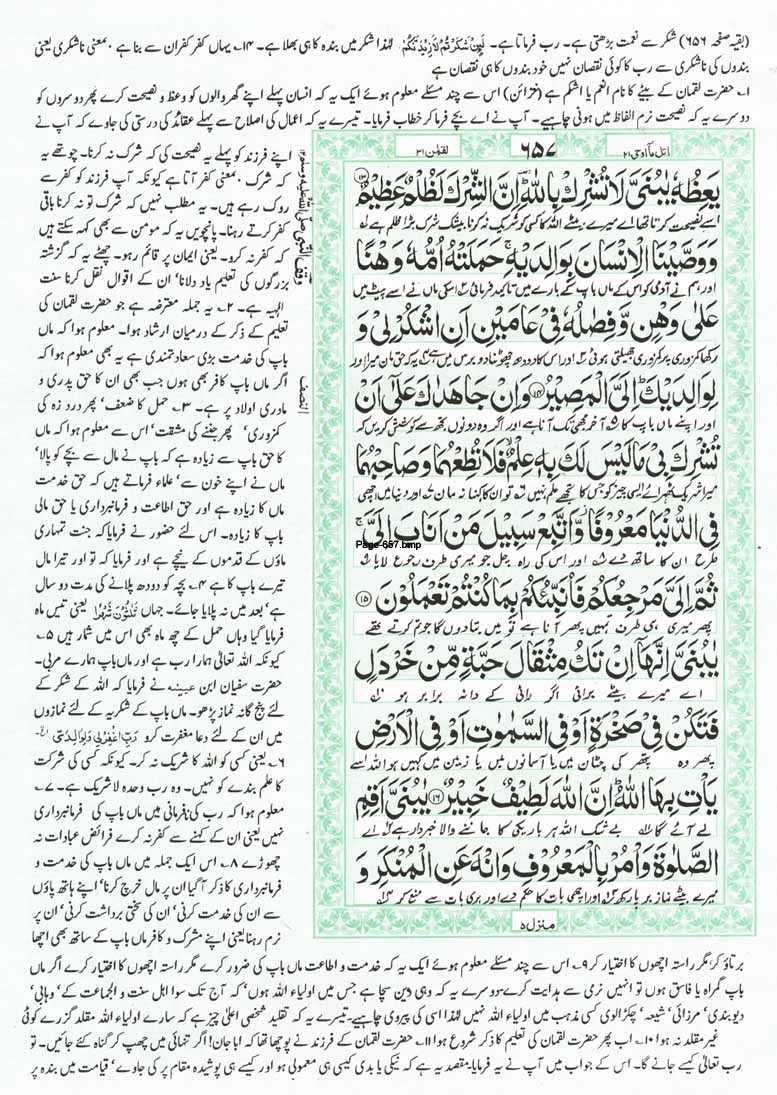 (بقیہ صفحہ ۶۵۶) شکر سے نعمت بڑھتی ہے۔ رب فرماتا ہے۔ لَئِنْ شَكَرْتُمْ لَاَزِيْدَنَّكُمْ لہٰذا شکر میں بندہ کا ہی بھلا ہے۔ ۱۴۔ یہاں کفر کفران سے بنا ہے۔ بمعنی ناشکری یعنی
بندوں کی ناشکری سے رب کا کوئی نقصان نہیں خود بندوں کا ہی نقصان ہے
۱۔ حضرت لقمان کے بیٹے کا نام انعم یا اشکم ہے (خزائن) اس سے چند مسئلے معلوم ہوئے ایک یہ کہ انسان پہلے اپنے گھر والوں کو وعظ و نصیحت کرے پھر دوسروں کو
دوسرے یہ کہ نصیحت نرم الفاظ میں ہونی چاہیے۔ آپ نے اے بچے فرما کر خطاب فرمایا۔ تیسرے یہ کہ اعمال کی اصلاح سے پہلے عقائد کی درستی کی جاوے کہ آپ نے
اپنے فرزند کو پہلے یہ نصیحت کی کہ شرک نہ کرنا۔ چوتھے یہ
کہ شرک بمعنی کفر آتا ہے کیونکہ آپ فرزند کو کفر سے
روک رہے ہیں۔ یہ مطلب نہیں کہ شرک تو نہ کرنا باقی
کفر کرتے رہنا۔ پانچویں یہ کہ مومن سے بھی کہہ سکتے ہیں
کہ کفر نہ کرو۔ یعنی ایمان پر قائم رہو۔ چھٹے یہ کہ گزشتہ
بزرگوں کی تعلیم یاد دلانا' ان کے اقوال نقل کرنا سنت
الٰہیہ ہے۔ ۲۔ یہ جملہ معترضہ ہے جو حضرت لقمان کی
تعلیم کے ذکر کے درمیان ارشاد ہوا۔ معلوم ہوا کہ ماں
باپ کی خدمت بڑی سعادتمندی ہے یہ بھی معلوم ہوا کہ
اگر ماں باپ کافر بھی ہوں جب بھی ان کا حق پدری و
مادری اولاد پر ہے۔ ۳۔ حمل کا ضعف' پھر درد زہ کی
کمزوری' پھر جننے کی مشقت' اس سے معلوم ہوا کہ ماں
کا حق باپ سے زیادہ ہے کہ باپ نے مال سے بچے کو پالا'
ماں نے اپنے خون سے' علماء فرماتے ہیں کہ حق خدمت
ماں کا زیادہ ہے اور حق اطاعت و فرمانبرداری یا حق مالی
باپ کا زیادہ۔ اس لئے حضور نے فرمایا کہ جنت تمہاری
ماؤں کے قدموں کے نیچے ہے اور فرمایا کہ تو اور تیرا مال
تیرے باپ کا ہے ۴۔ بچہ کو دودھ پلانے کی مدت دو سال
ہے' بعد میں نہ پلایا جائے۔ جہاں ثَلٰثُوْنَ شَهْرًا یعنی تیس ماہ
فرمایا گیا وہاں حمل کے چھ ماہ بھی اس میں شمار ہیں ۵۔
کیونکہ اللہ تعالیٰ ہمارا رب ہے اور ماں باپ ہمارے مربی۔
حضرت سفیان ابن عیینہ نے فرمایا کہ اللہ کے شکر کے
لئے پنج گانہ نماز پڑھو۔ ماں باپ کے شکریہ کے لئے نمازوں
میں ان کے لئے دعا مغفرت کرو رَبِّ اغْفِرْ لِيْ وَلِوَالِدَيَّ الخ۔
۶۔ یعنی کسی کو اللہ کا شریک نہ کر۔ کیونکہ کسی کی شرکت
کا علم بندے کو نہیں۔ وہ رب وحدہ لاشریک ہے۔ ۷۔
معلوم ہوا کہ رب کی نافرمانی میں ماں باپ کی فرمانبرداری
نہیں یعنی ان کے کہنے سے کفر نہ کرے فرائض عبادات نہ
چھوڑے ۸۔ اس ایک جملہ میں ماں باپ کی خدمت و
فرمانبرداری کا ذکر آگیا ان پر مال خرچ کرنا' اپنے ہاتھ پاؤں
سے ان کی خدمت کرنی' ان کی سختی برداشت کرنی' ان پر
نرم رہنا یعنی اپنے مشرک و کافر ماں باپ کے ساتھ بھی اچھا
وقف النبی صلی اللہ علیہ وسلم
النصف
اتل ما اوحی ۲۱ ۶۵۷ لقمٰن ۳۱
يَعِظُهٗ يٰبُنَيَّ لَا تُشْرِكْ بِاللّٰهِ ؔ اِنَّ الشِّرْكَ لَظُلْمٌ عَظِيْمٌ ۝۱۳
اسے نصیحت کرتا تھا اے میرے بیٹے اللہ کا کسی کو شریک نہ کرنا بیشک شرک بڑا ظلم ہے
وَ وَصَّيْنَا الْاِنْسَانَ بِوَالِدَيْهِ ۚ حَمَلَتْهُ اُمُّهٗ وَهْنًا
اور ہم نے آدمی کو اس کے ماں باپ کے بارے میں تاکید فرمائی اسکی ماں نے اسے پیٹ میں
عَلٰى وَهْنٍ وَّ فِصٰلُهٗ فِيْ عَامَيْنِ اَنِ اشْكُرْ لِيْ وَ
رکھا کمزوری پر کمزوری جھیلتی ہوئی اور اس کا دودھ چھوٹنا دو برس میں ہے یہ کہ حق مان میرا اور
لِوَالِدَيْكَ ؕ اِلَيَّ الْمَصِيْرُ ۝۱۴ وَ اِنْ جَاهَدٰكَ عَلٰۤى اَنْ
اور اپنے ماں باپ کا آخر مجھی تک آنا ہے اور اگر وہ دونوں تجھ سے کوشش کریں کہ
تُشْرِكَ بِيْ مَا لَيْسَ لَكَ بِهٖ عِلْمٌ ۙ فَلَا تُطِعْهُمَا وَ صَاحِبْهُمَا
میرا شریک ٹھہرائے ایسی چیز کو جس کا تجھے علم نہیں تو ان کا کہنا نہ مان اور دنیا میں اچھی
فِي الدُّنْيَا مَعْرُوْفًا ؗ وَّ اتَّبِعْ سَبِيْلَ مَنْ اَنَابَ اِلَيَّ ۚ
Page-657.bmp
طرح ان کا ساتھ دے اور اس کی راہ چل جو میری طرف رجوع لایا
ثُمَّ اِلَيَّ مَرْجِعُكُمْ فَاُنَبِّئُكُمْ بِمَا كُنْتُمْ تَعْمَلُوْنَ ۝۱۵
پھر میری ہی طرف تمہیں پھر آنا ہے تو میں بتا دوں گا جو تم کرتے تھے
يٰبُنَيَّ اِنَّهَاۤ اِنْ تَكُ مِثْقَالَ حَبَّةٍ مِّنْ خَرْدَلٍ
اے میرے بیٹے برائی اگر رائی کے دانہ برابر ہو
فَتَكُنْ فِيْ صَخْرَةٍ اَوْ فِي السَّمٰوٰتِ اَوْ فِي الْاَرْضِ
پھر وہ پتھر کی چٹان میں یا آسمانوں میں یا زمین میں کہیں ہو اللہ اسے
يَاْتِ بِهَا اللّٰهُ ؕ اِنَّ اللّٰهَ لَطِيْفٌ خَبِيْرٌ ۝۱۶ يٰبُنَيَّ اَقِمِ
لے آئے گا بے شک اللہ ہر باریکی کا جاننے والا خبردار ہے اے
الصَّلٰوةَ وَ اْمُرْ بِالْمَعْرُوْفِ وَ انْهَ عَنِ الْمُنْكَرِ وَ
میرے بیٹے نماز برپا رکھ اور اچھی بات کا حکم دے اور بری بات سے منع کر
منزل ۵
برتاؤ کر مگر راستہ اچھوں کا اختیار کر ۹۔ اس سے چند مسئلے معلوم ہوئے ایک یہ کہ خدمت و اطاعت ماں باپ کی ضرور کرے مگر راستہ اچھوں کا اختیار کرے اگر ماں
باپ گمراہ یا فاسق ہوں تو انہیں نرمی سے ہدایت کرے۔ دوسرے یہ کہ وہی دین سچا ہے جس میں اولیاء اللہ ہوں' کہ آج تک سوا اہل سنت و الجماعت کے' وہابی'
دیوبندی' مرزائی' شیعہ' چکڑالوی کسی مذہب میں اولیاء اللہ نہیں لہٰذا اسی کی پیروی چاہیے۔ تیسرے یہ کہ تقلید شخصی اعلیٰ چیز ہے کہ سارے اولیاء اللہ مقلد گزرے کوئی
غیر مقلد نہ ہوا ۱۰۔ اب پھر حضرت لقمان کی تعلیم کا ذکر شروع ہوا ۱۱۔ حضرت لقمان کے فرزند نے پوچھا تھا کہ ابا جان! اگر تنہائی میں چھپ کر گناہ کئے جائیں۔ تو
رب تعالیٰ کیسے جانے گا۔ اس کے جواب میں آپ نے یہ فرمایا۔ مقصد یہ ہے کہ نیکی یا بدی کیسی ہی معمولی ہو اور کیسے ہی پوشیدہ مقام پر کی جاوے' قیامت میں بندہ پر